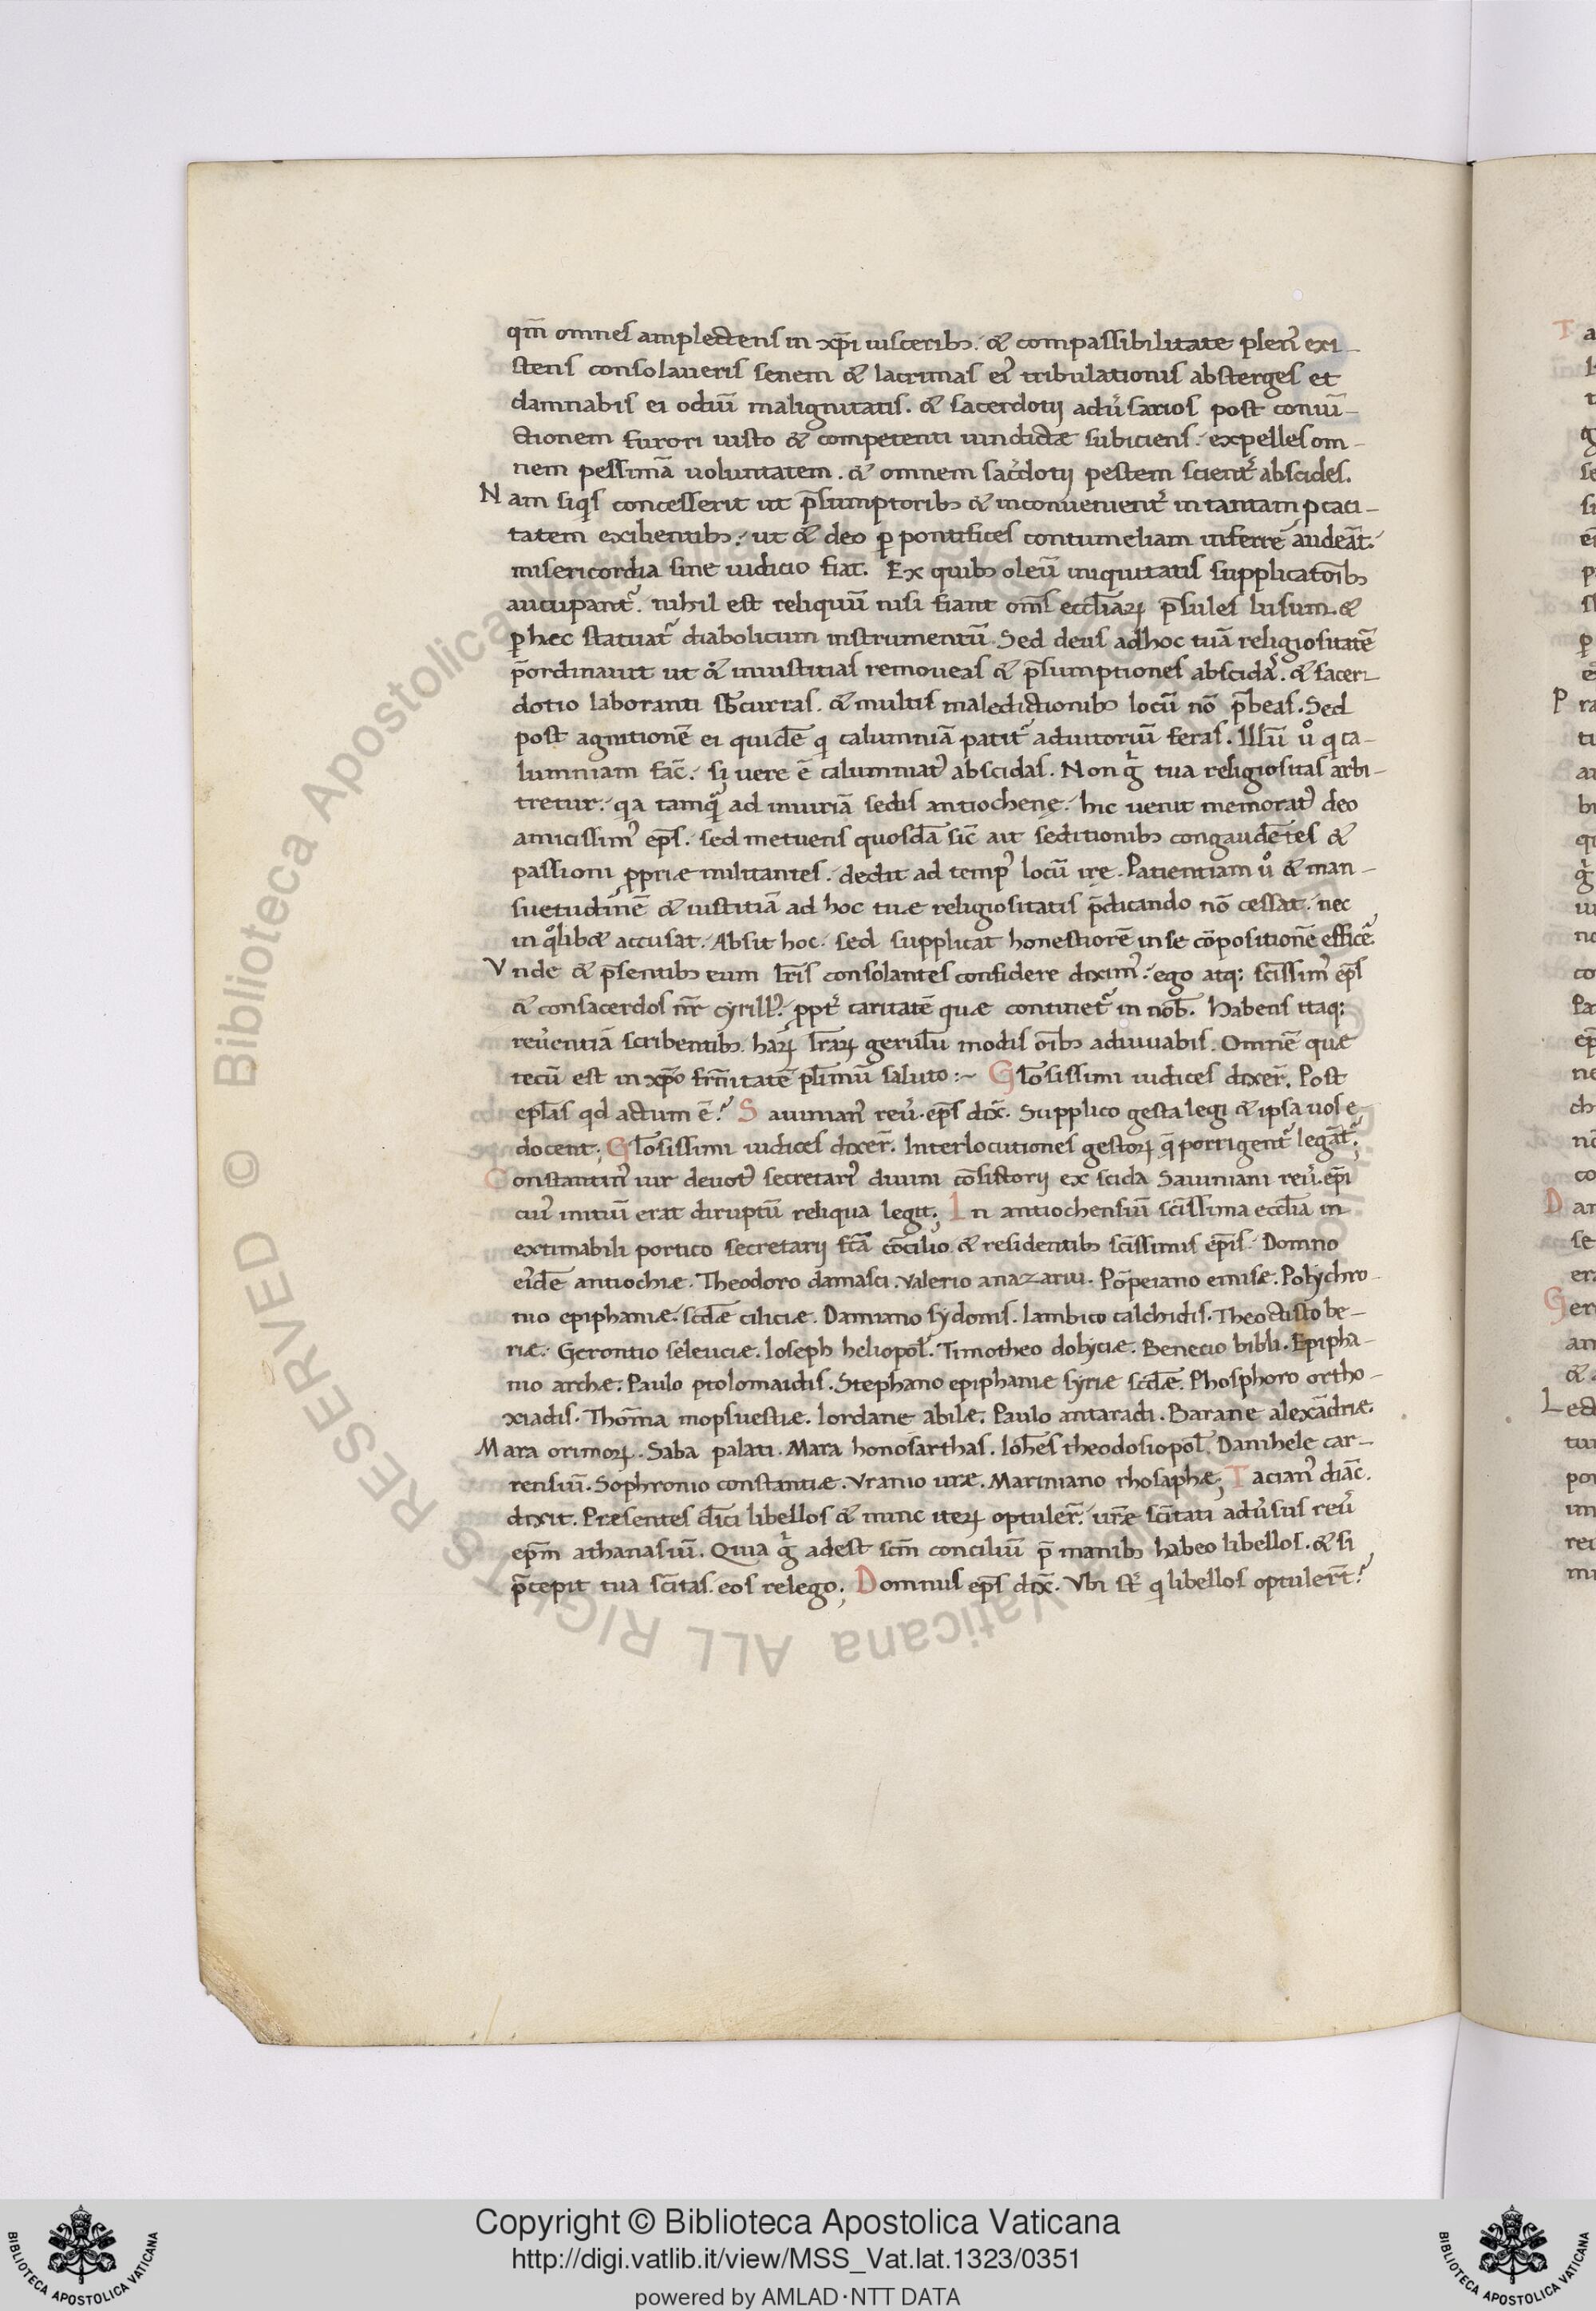 qm̄ omnes amplectens in xp̄i uisceribꝫ. & compassibilitate plen᾽ exi-
stens consolaueris senem & lacrimas ei᾽ tribulationis absterges et
damnabis ei odiū malignitatis. & sacerdotij adu᾽sarios post conui-
ctionem furori iusto & competenti uindictæ subiciens. expelles om-
nem pessimā uoluntatem. & omnem sac᾽dotij pestem scient᾽ abscides.
Nam siqͥs concesserit ut p̄sumptoribꝫ & inconuenient᾽ in tantam ꝓcaci-
tatem exibentibꝫ. ut & deo ꝑ pontifices contumeliam inferre audeāt.
misericordia sine iudicio fiat. Ex quibꝫ oleū iniquitatis supplicatoībꝫ
aucupant᾽. nihil est reliquū nisi fiant om̄s eccl̄iaꝝ p̄sules lusum. &
ꝑ hec statuat᾽ diabolicum instrumentū. Sed deus adhoc tuā religiositatē
p̄ordinauit ut & iniustitias remoueas & p̄sumptiones abscidas. & sacer-
dotio laboranti sƀcurras. & multis maledictionibꝫ locū nō p̄beas. Sed
post agnitionē ei quidē qͥ calumniā patit᾽ adiutoriū feras. Illū u᾽o qͥ ca-
lumniam fac̄. si uere ē calumniat᾽ abscidas. Non gͥ tua religiositas arbi-
tretur. qa tamqͣ ad iniuriā sedis antiochenę. hic uenit memorat᾽ deo
amicissim᾽ ep̄s. sed metuens quosdā sic̄ ait seditionibꝫ congaudētes &
passioni ꝓpriæ militantes. dedit ad temp᾽ locū irę. Patientiam u᾽o & man-
suetudinē & iustitiā ad hoc tuæ religiositatis p̄dicando nō cessat. nec
in qͦlibꝫ accusat. Absit hoc. sed supplicat honestiorē in se cōpositionē effice᾽.
Vnde & p̄sentibꝫ eum lr̄is consolantes confidere diximꝰ. ego atq; sc̄issimꝰ ep̄s
& consacerdos nr̄ cyrillꝰ. ꝓpt᾽ caritatē quæ continet᾽ in nob̄. Habens itaq;
reu᾽entiā scribentibꝫ. haꝝ lr̄aꝝ gerulū modis oībꝫ adiuuabis. Omnē que
tecū est in xp̄o fr̄nitatē pl̄imū saluto:~ Gl̄osissimi iudices dixer̄. Post
epl̄as qd actum ē? Sauinianꝰ reu᾽. ep̄s dix̄. Supplico gesta legi & ipsa uos e-
docent; Gl̄osissimi iudices dixer̄. Interlocutiones gestoꝝ q̄ porrigent᾽ legāt᾽;
Constantinꝰ uir deuotꝰ secretariꝰ diuini cōsistorij ex scida Sauiniani reu᾽. ep̄i
cuiꝰ initiū erat diruptū reliqua legit; In antiochensiū sc̄issima eccl̄ia in
extimabili portico secretarij fc̄ā cōcilio. & residentibꝫ sc̄issimis ep̄is. Domno
eiꝰdē antiochiæ. Theodoro damasci. Valerio anazarui. Pōpeiano emisæ. Polychro-
nio epiphaniæ. sc̄dæ ciliciæ. Damiano sydonis. Iambico calchidis. Theoctisto be-
riæ. Gerontio seleuciæ. Ioseph heliopol̄. Timotheo doliciæ. Benecio bibli. Epipha-
nio archæ. Paulo ptolomaidis. Stephano epiphaniæ syriæ sc̄dæ. Phosphoro ortho-
xiadis. Thōma mopsuestiæ. Iordane abilæ. Paulo antaradi. Barane alexādriæ.
Mara orimoꝝ. Saba palati. Mara honosarthas. Ioh̄es theodosiopol̄. Danihele car-
rensiū. Sophronio constantiæ. Vranio uræ. Mariniano rhosaphæ; Tacianꝰ diāc.
dixit. Præsentes dic̄i libellos & nunc iteꝝ optuler̄. ur̄æ sc̄itati adu᾽sus reu᾽
ep̄m athanasiū. Quia gͥ adest sc̄m conciliū p̄ manibꝫ habeo libellos. & si
p̄cepit tua sc̄itas. eos relego; Domnus ep̄s dix̄. Vbi st᾽ qͥ libellos optuler̄t?
Copyright © Biblioteca Apostolica Vaticana
http://digi.vatlib.it/view/MSS_Vat.lat.1323/0351
powered by AMLAD·NTT DATA